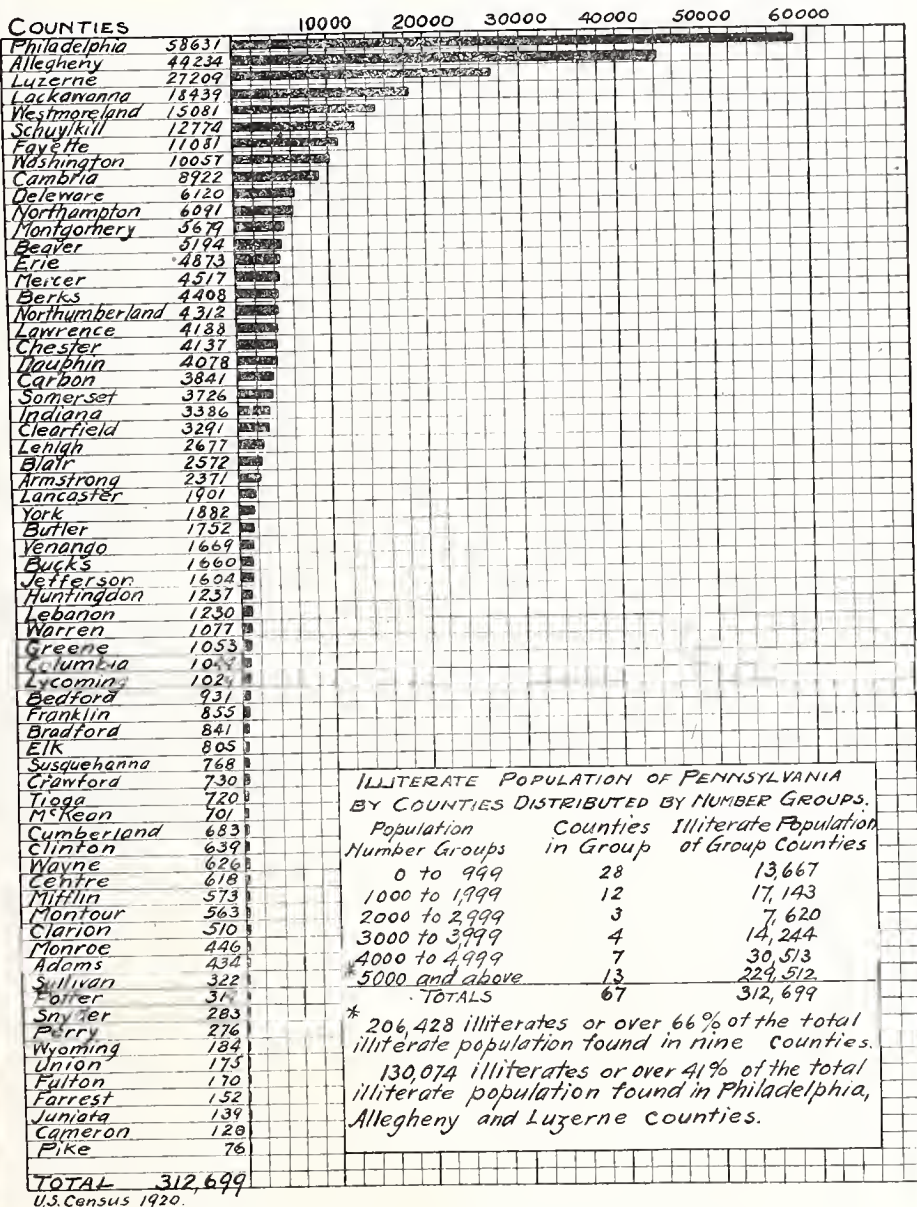 COUNTIES 10000 20000 30000 40000 50000 60000
Philadelphia 58631
Allegheny 44234
Luzerne 27209
Lackawanna 18439
Westmoreland 15081
Schuylkill 12774
Fayette 11081
Washington 10057
Cambria 8922
Deleware 6120
Northampton 6091
Montgomery 5679
Beaver 5194
Erie 4873
Mercer 4517
Berks 4408
Northumberland 4312
Lawrence 4188
Chester 4137
Dauphin 4078
Carbon 3841
Somerset 3726
Indiana 3386
Clearfield 3291
Lehigh 2677
Blair 2572
Armstrong 2371
Lancaster 1901
York 1882
Butler 1752
Venango 1669
Bucks 1660
Jefferson 1604
Huntingdon 1237
Lebanon 1230
Warren 1077
Greene 1053
Columbia
Lycoming
Bedford 931
Franklin 855
Bradford 841
Elk 805
Susquehanna 768
Crawford 730
Tioga 720
McKean 701
Cumberland 683
Clinton 639
Wayne 626
Centre 618
Mifflin 573
Montour 563
Clarion 510
Monroe 446
Adams 434
Sullivan 322
Potter
Snyder 283
Perry 276
Wyoming 184
Union 175
Fulton 170
Farrest 152
Juniata 139
Cameron 128
Pike 76
TOTAL 312,699
U.S. Census 1920.
ILLITERATE POPULATION OF PENNSYLVANIA
BY COUNTIES DISTRIBUTED BY NUMBER GROUPS.
Population Counties Illiterate Population
Number Groups in Group of Group Counties
0 to 999 28 13,667
1000 to 1,999 12 17,143
2000 to 2,999 3 7,620
3000 to 3,999 4 14,244
4000 to 4,999 7 30,513
* 5000 and above 13 229,512
TOTALS 67 312,699
* 206,428 illiterates or over 66% of the total
illiterate population found in nine counties.
130,074 illiterates or over 41% of the total
illiterate population found in Philadelphia,
Allegheny and Luzerne counties.